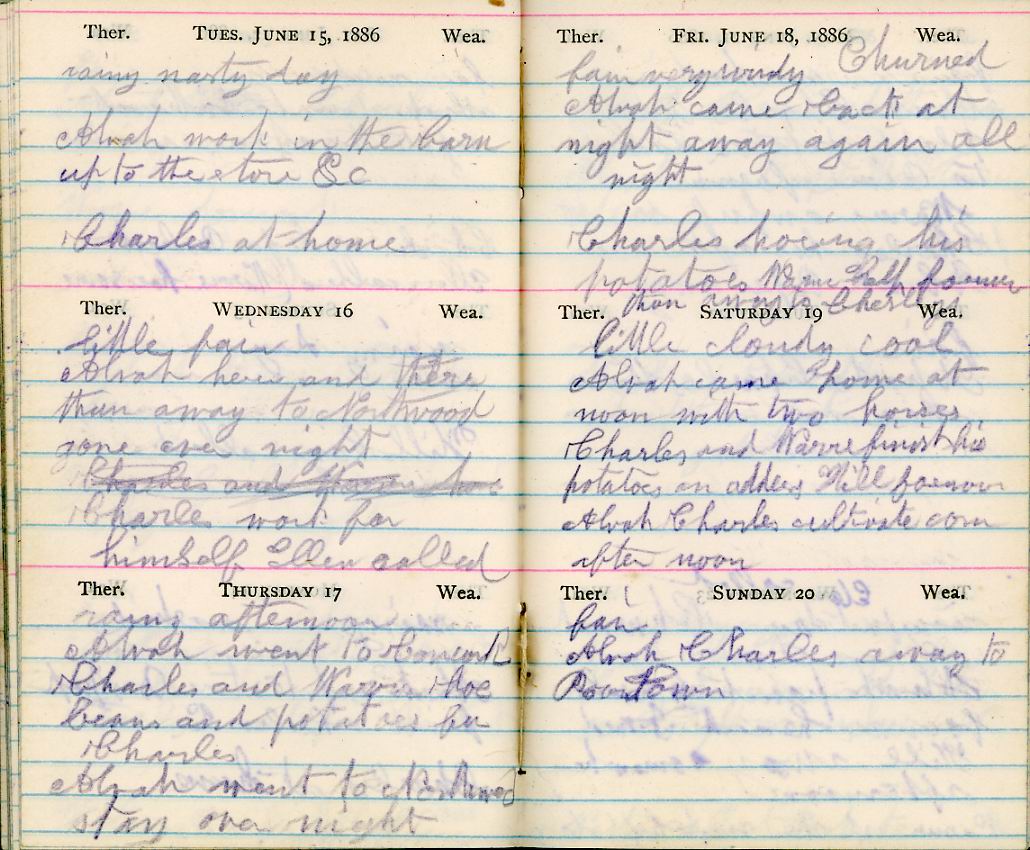 Ther. TUES. JUNE 15, 1886 Wea.
rainy nasty day
Alvah work in the barn
up to the store &c
Charles at home
Ther. WEDNESDAY 16 Wea.
little fair
Alvah here and there
than away to Northwood
gone over night
Charles and Warvie hoe
Charles work for
himself Ellen called
Ther. THURSDAY 17 Wea.
rainy afternoon
Alvah went to Concord
Charles and Warvie Hoe
beans and potatoes for
Charles
Alvah went to Northwood
stay over night
Ther. FRI. JUNE 18, 1886 Wea.
fair very windy Churned
Alvah came back at
night away again all
night
Charles hoeing his
potatoes Warvie help forenoon
than away to Charleys
Ther. SATURDAY 19 Wea.
little cloudy cool
Alvah came home at
noon with two horses
Charles and Warvie finish his
potatoes on Hill forenoon
Alvah Charles cultivate corn
after noon
Ther. SUNDAY 20 Wea.
fair
Alvah Charles away to
Town